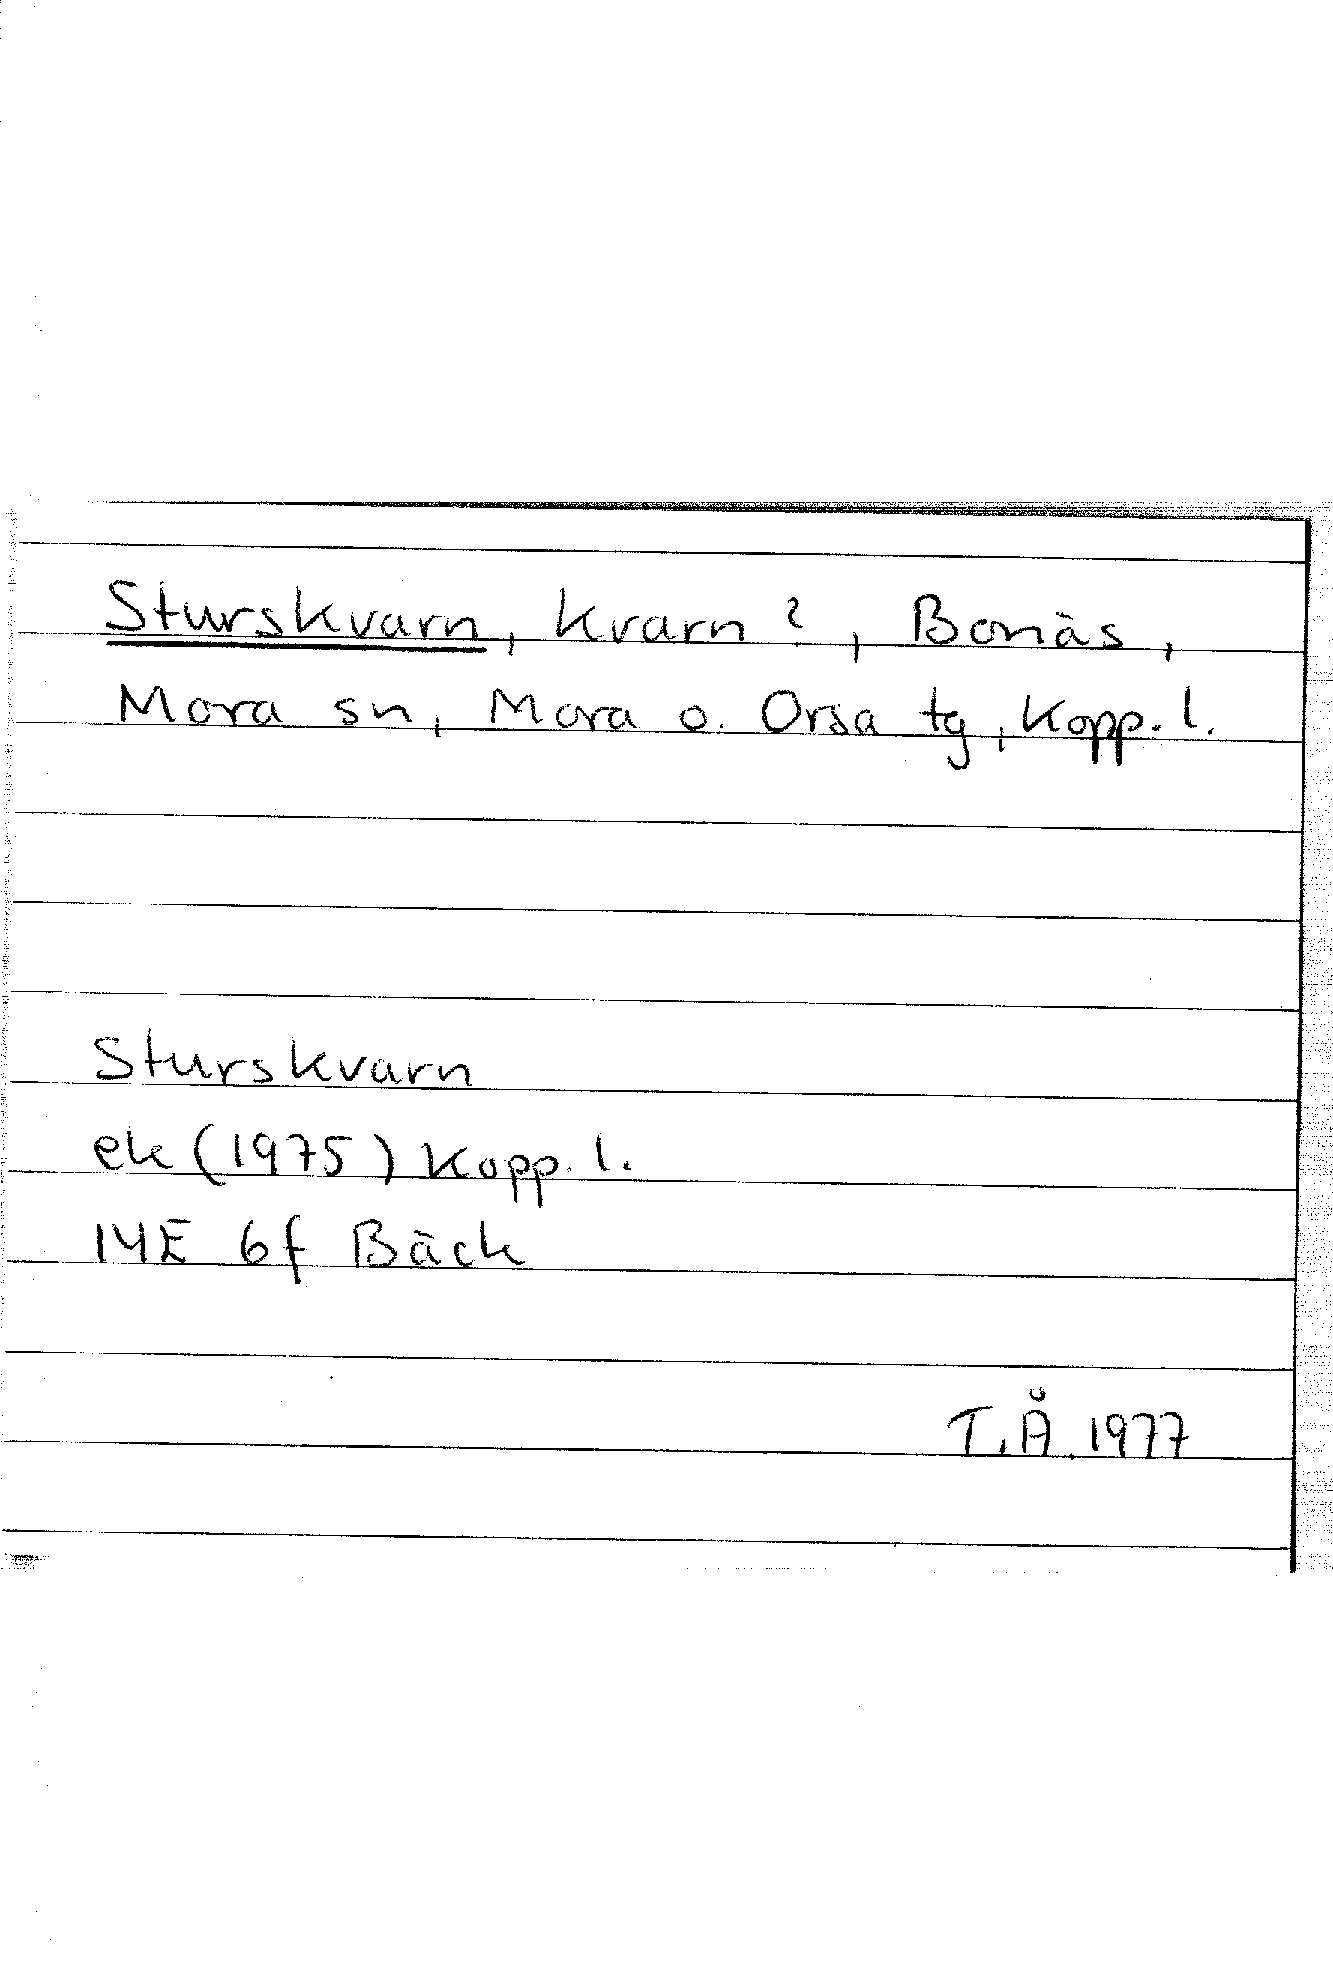 Sturskvarn, kvarn?, Bonäs,
Mora sn, Mora o. Orsa tg, Kopp. l.
Sturskvarn
ek (1975) Kopp. l.
14E 6f Bäck
T.Å. 1977